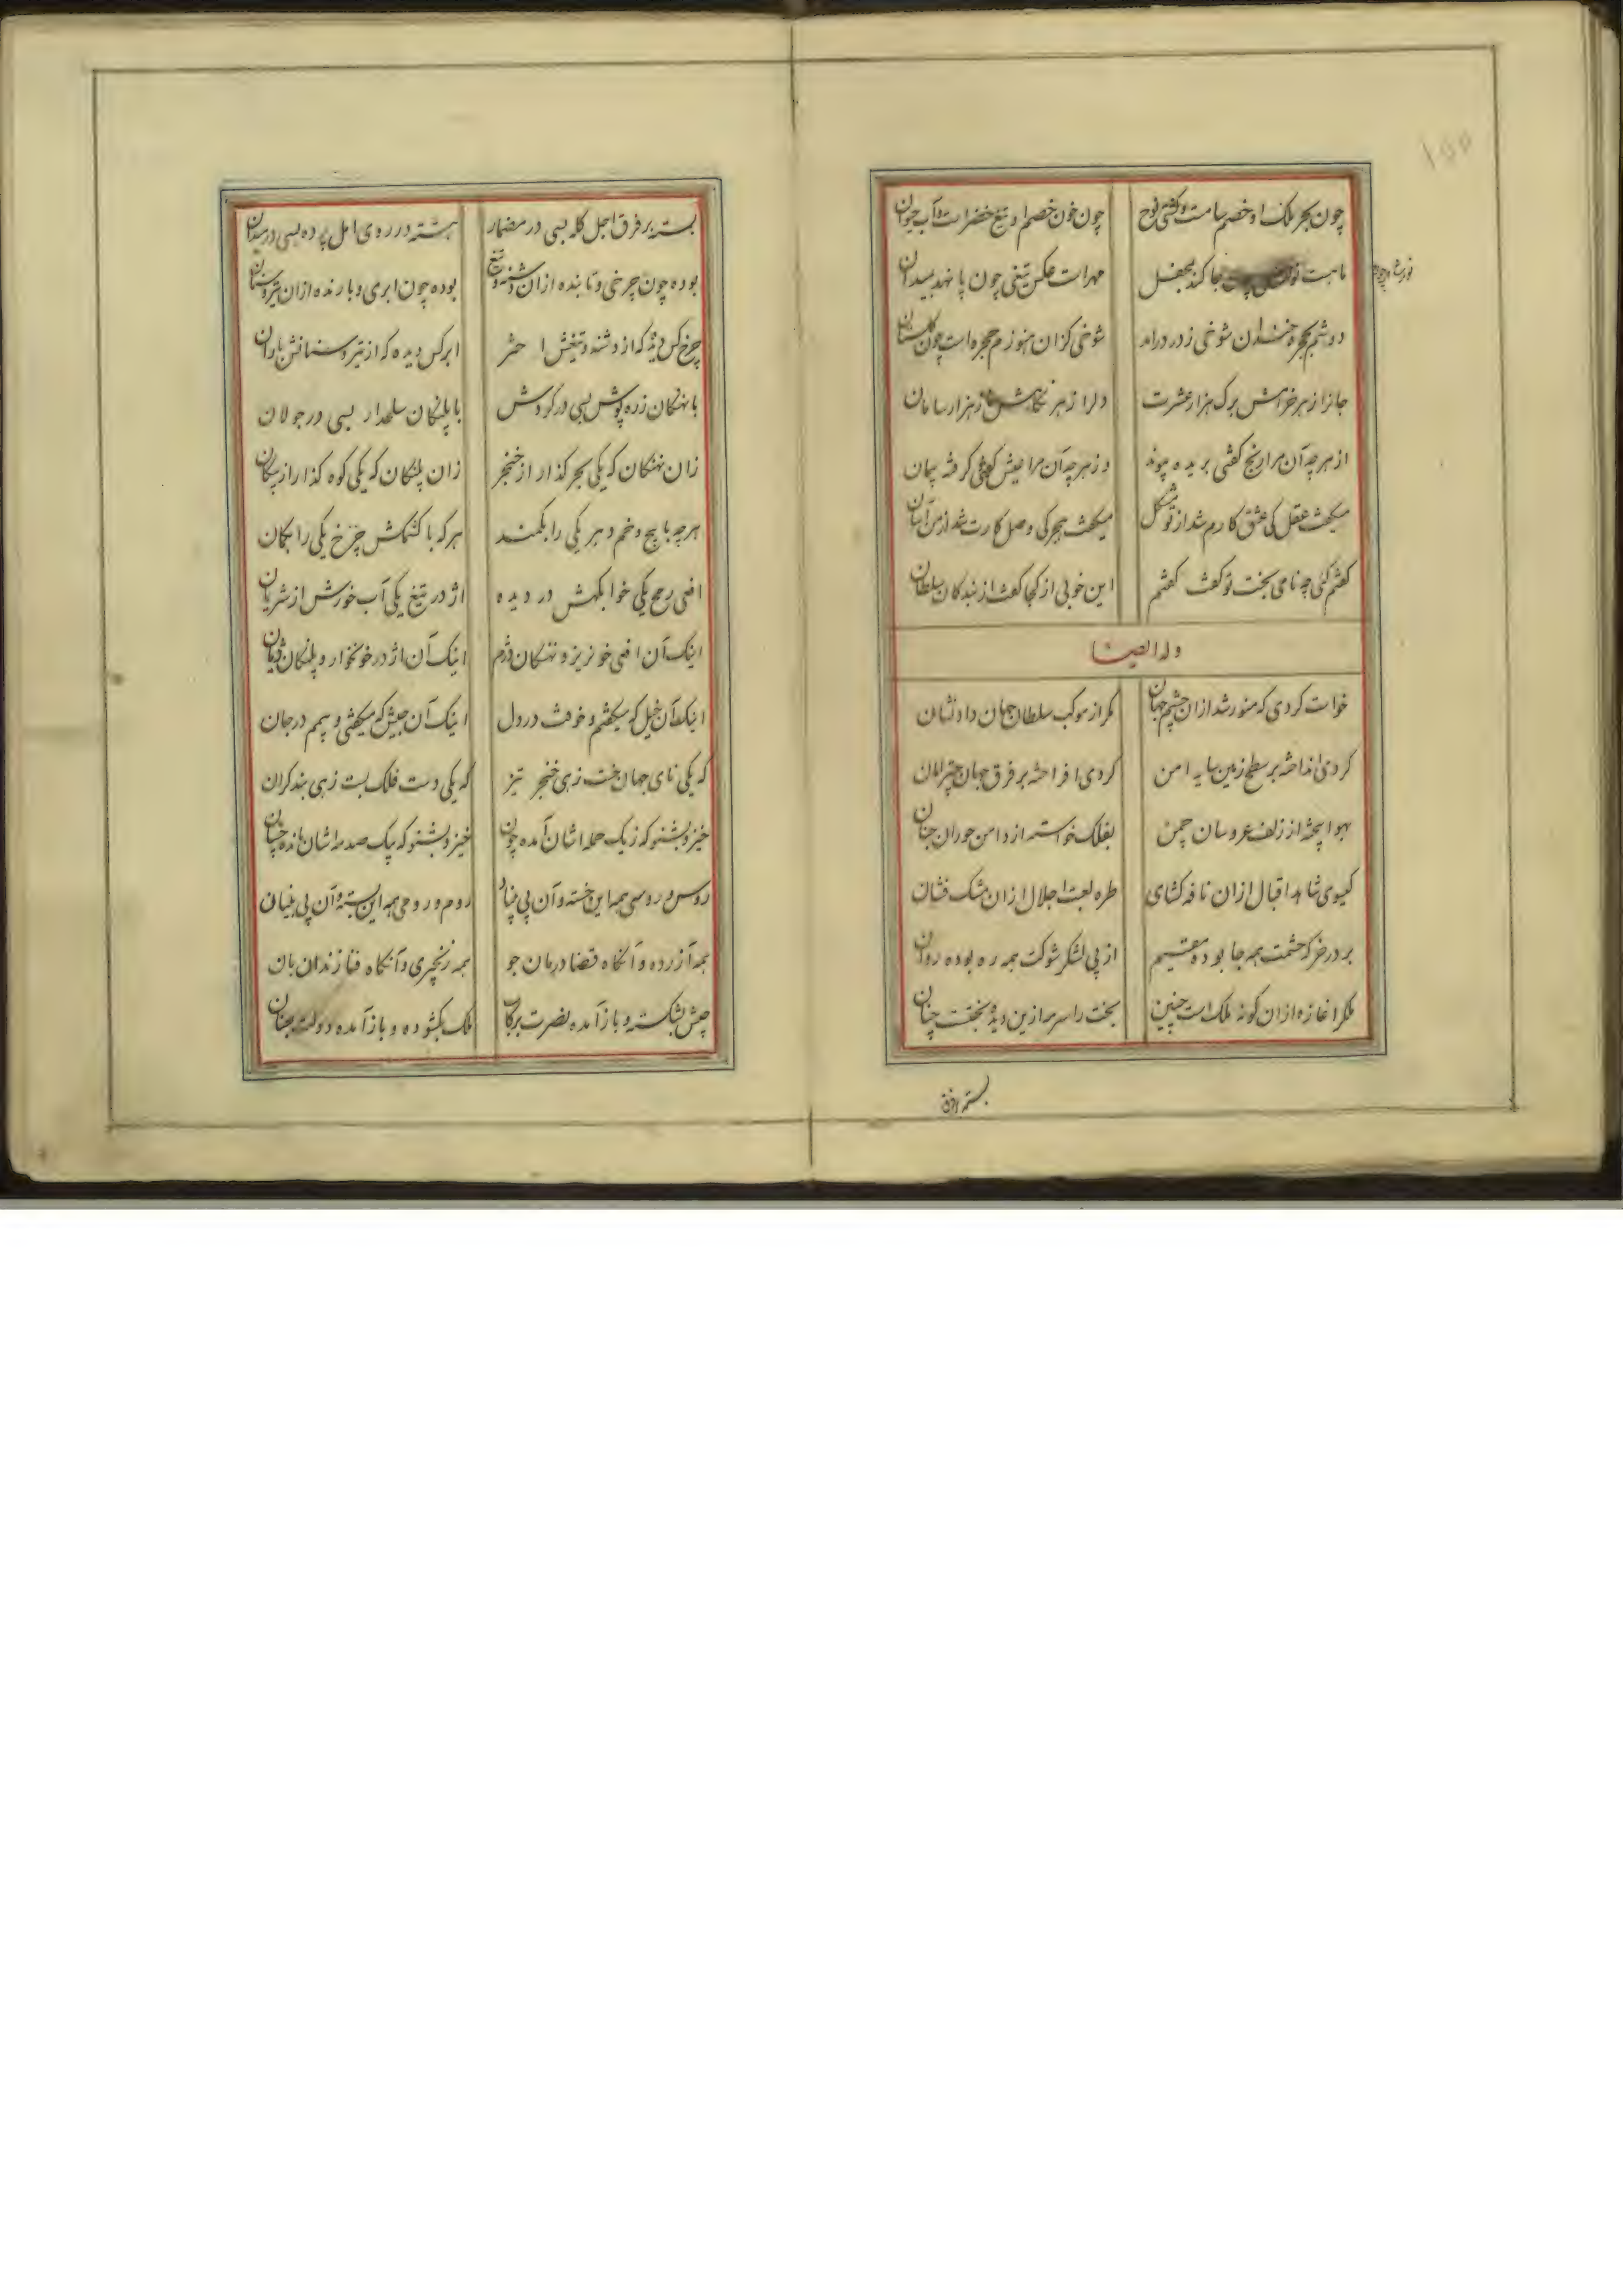 ۱۵۵
چون بحر ملک او خصم سامت و کشتی نوح
چون خون خصم او تیغ خضرات و آب حیوان
ماهست جا کند بمحفل
مهرات عکس تیغی چون پا نهد بمیدان
دوشم بحجره خندان شوخی ز در درامد
شوخی کزان هنوزم حجره است چون گلستان
جانرا ز هر خرامش برک هزار عشرت
دلرا ز هر نگاهش هزار سامان
از هر چه آن مرا رنج گفتی بریده پیوند
وز هر چه آن مرا عیش گفتی گرفته پیمان
میگفت عقل کی عشق کارم شد از تو مشکل
میگفت هجر کی وصل کارت شد از من آسان
گفتم کئی چه نامی بخت تو گفت گفتم
این خوبی از کجا گفت از بندگان سلطان
وله ایضا
خواست گردی که منور شد ازان چشم جهان
مگر از موکب سلطان جهان داد نشان
گردی انداخته بر سطح زمین سایه امن
گردی افراخته بر فرق جهان چتر امان
بهوا بیخته از زلف عروسان چمن
بفلک خواسته از دامن حوران جنان
گیسوی شاهد اقبال ازان نافه گشای
طره لعبت اجلال ازان مشک فشان
بر در خرگه حشمت همه جا بوده مقیم
از پی لشکر شوکت همه ره بوده روان
ملکرا غازه ازان گونه ملک است چنین
بخت را سرمه ازین دیده بختت چنان
بسته بر فرق
بسته بر فرق اجل کله بسی در مضمار
هشته در روی امل پرده بسی در میدان
بوده چون چرخی و تابنده ازان دشنه و تیغ
بوده چون ابری و بارنده ازان تیر و سنان
چرخ کس دیده که از دشنه و تیغش اختر
ابر کس دیده که از تیر و سنانش باران
با نهنگان زره پوش بسی در گردش
با پلنگان سلحدار بسی در جولان
زان نهنگان که یکی بحر گذار از خنجر
زان پلنگان که یکی کوه گذار از پیکان
هر چه با پیچ و خم دهر یکی را بکمند
هر که با کشمکش چرخ یکی را بکمان
افعی رمح یکی خوابگهش در دیده
اژدر تیغ یکی آب خورش از شریان
اینک آن افعی خونریز و نهنگان دژم
اینک آن اژدر خونخوار و پلنگان ژیان
اینک آن خیل که میگفتم و خوفت در دل
اینک آن جیش که میگفتی و بیم در جان
که یکی نای جهان خست زهی خنجر تیز
که یکی دست فلک بست زهی بند گران
خیز و بشنو که ز یک حمله اشان آمده چون
خیز و بشنو که بیک صدمه اشان مانده چسان
روس و روسی همه این خسته و آن بی بنیاد
روم و رومی همه این بسته و آن بی بنیان
همه آزرده و آنگاه قضا درمان جو
همه زنجیری و آنگاه فنا زندان بان
جیش بشکسته و باز آمده نصرت برکاب
ملک بگشوده و باز آمده دولت بعنان